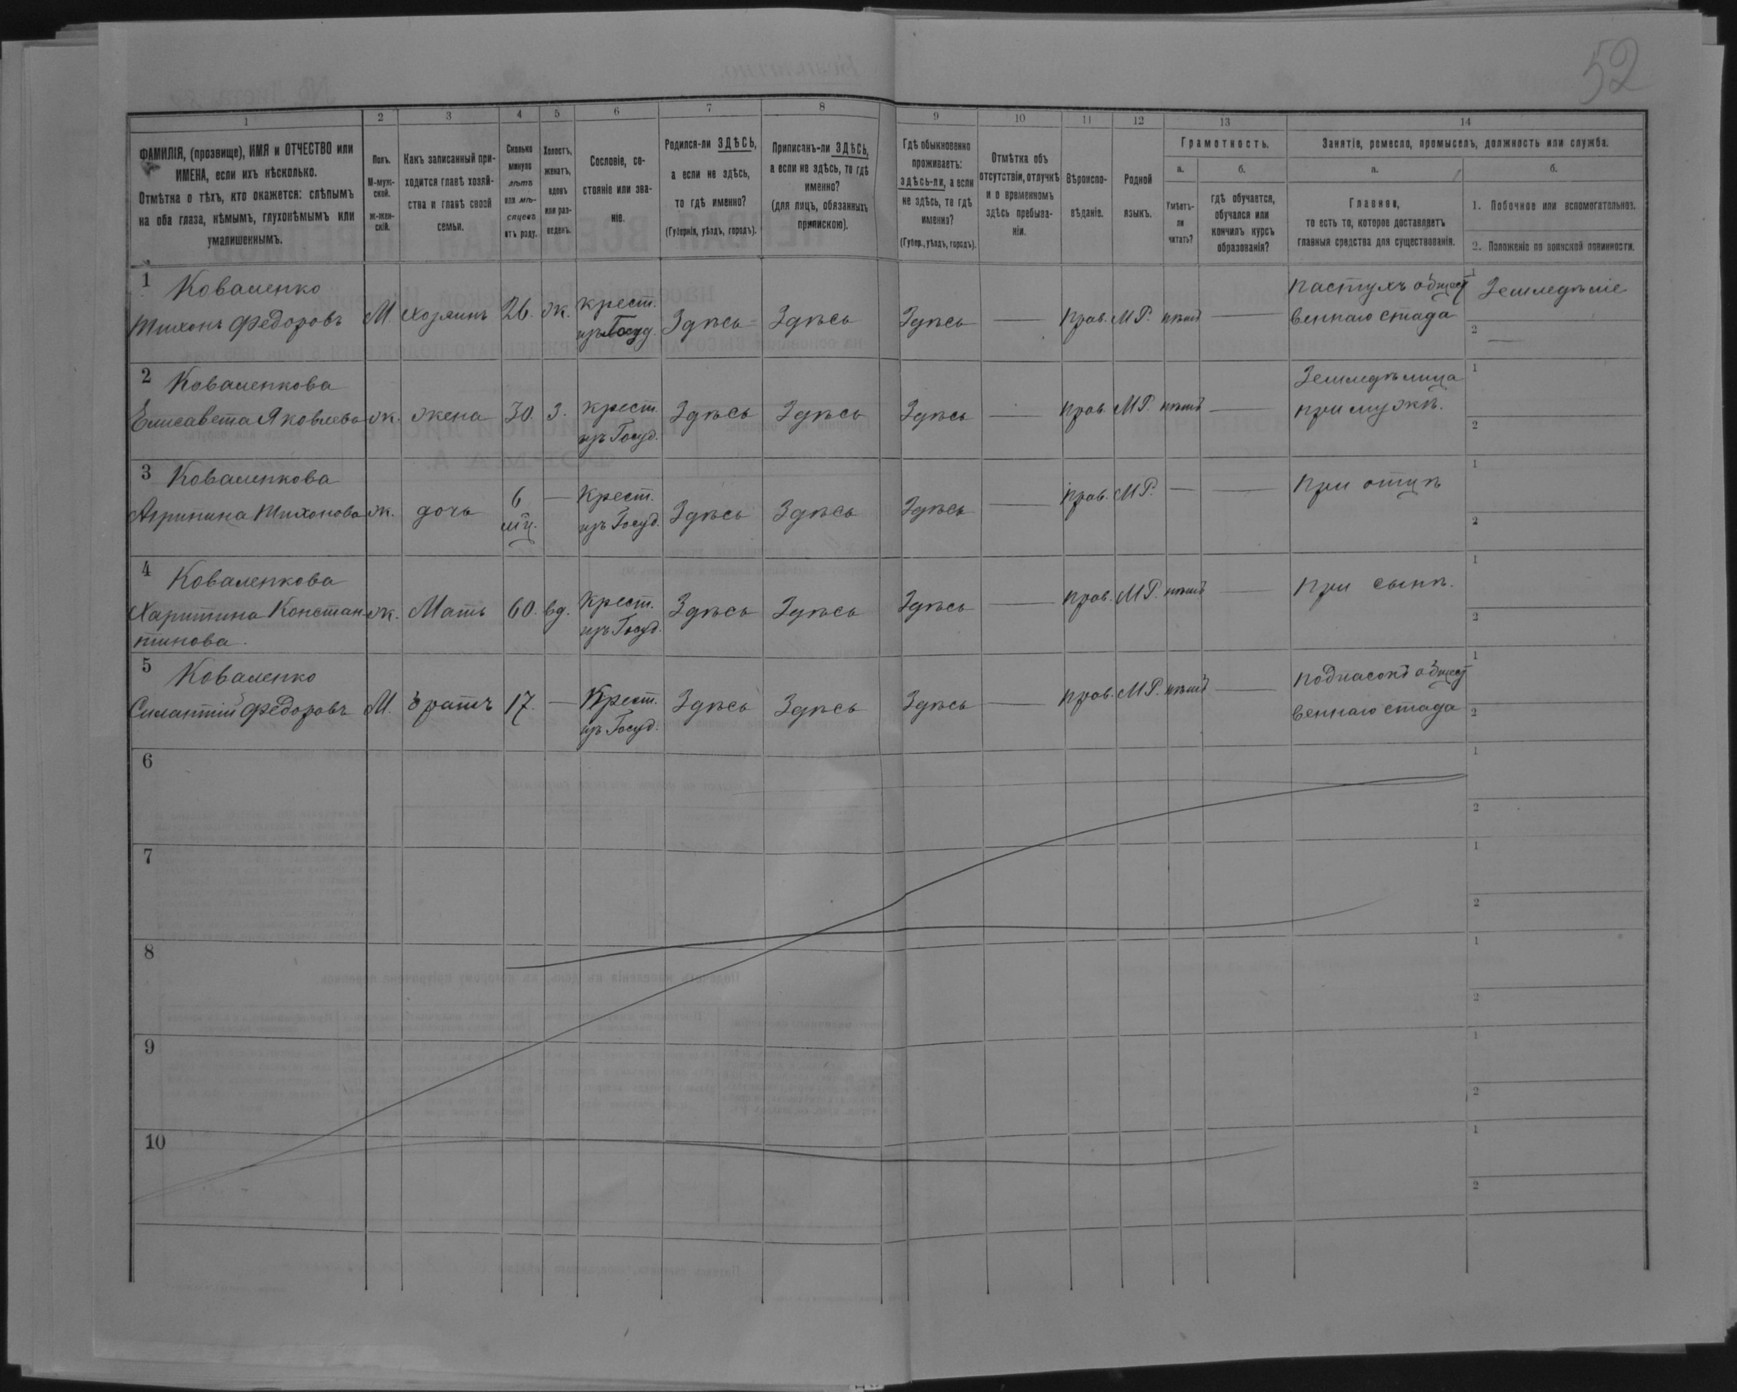 52
1 2 3 4 5 6 7 8 9 10 11 12 13 14
ФАМИЛІЯ, (прозвище), ИМЯ и ОТЧЕСТВО или
ИМЕНА, если ихъ нѣсколько.
Отмѣтка о тѣхъ, кто окажется: слѣпымъ
на оба глаза, нѣмымъ, глухонѣмымъ или
умалишеннымъ.
Полъ.
М-муж-
ской.
Ж-жен-
скій.
Какъ записанный при-
ходится главѣ хозяй-
ства и главѣ своей
семьи.
Сколько
минуло
лѣтъ
или мѣ-
сяцевъ
отъ роду.
Холостъ,
женатъ,
вдовъ
или раз-
веденъ.
Сословіе, со-
стояніе или зва-
ніе.
Родился-ли ЗДѢСЬ,
а если не здѣсь,
то гдѣ именно?
(Губернія, уѣздъ, городъ).
Приписанъ-ли ЗДѢСЬ,
а если не здѣсь, то гдѣ
именно?
(для лицъ, обязанныхъ
припискою).
Гдѣ обыкновенно
проживаетъ:
здѣсь-ли, а если
не здѣсь, то гдѣ
именно?
(Губер., уѣздъ, городъ).
Отмѣтка объ
отсутствіи, отлучкѣ
и о временномъ
здѣсь пребыва-
ніи.
Вѣроиспо-
вѣданіе.
Родной
языкъ.
Грамотность.
а.
Умѣетъ-
ли
читать?
б.
гдѣ обучается,
обучался или
кончилъ курсъ
образованія?
Занятіе, ремесло, промыселъ, должность или служба.
а.
Главное,
то есть то, которое доставляетъ
главныя средства для существованія.
б.
1. Побочное или вспомогательное.
2. Положеніе по воинской повинности.
1 Коваленко
Тихонъ Федоровъ М хозяинъ 26. ж. крест.
изъ Госуд. Здѣсь Здѣсь Здѣсь — прав. МР. нѣтъ — пастухъ общест
веннаго стада
1 Земледѣліе
2 —
2 Коваленкова
Елисавета Яковлева ж. жена 30 з. крест.
изъ Госуд. Здѣсь Здѣсь Здѣсь — прав. МР. нѣтъ — Земледѣлица
при мужѣ.
1
2
3 Коваленкова
Агрипина Тихонова ж. дочь 6
мц. — Крест.
изъ Госуд. Здѣсь Здѣсь Здѣсь — прав. МР. — — при отцѣ
1
2
4 Коваленкова
Харитина Констан
тинова ж. Мать 60. вд. Крест.
изъ Госуд. Здѣсь Здѣсь Здѣсь — прав. МР. нѣтъ — при сынѣ.
1
2
5 Коваленко
Силантій Федоровъ М. братъ 17. — Крест.
изъ Госуд. Здѣсь Здѣсь Здѣсь — прав. МР. нѣтъ — подпасокъ общест
веннаго стада
1
2
6
1
2
7
1
2
8
1
2
9
1
2
10
1
2